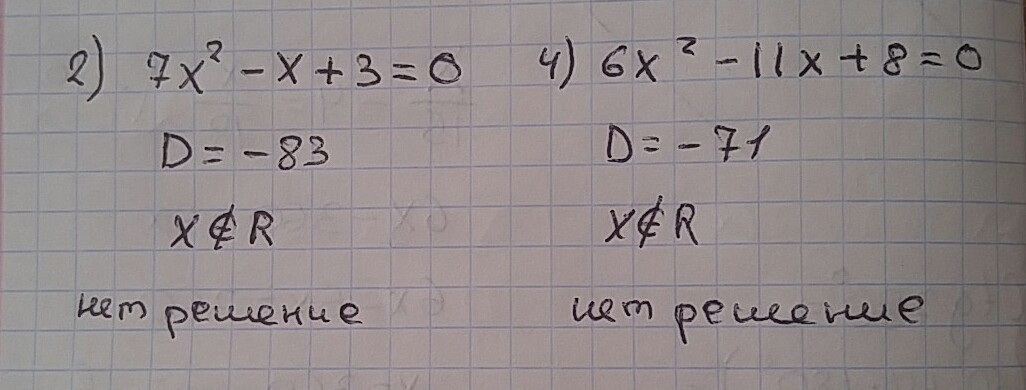 2) 7x² - x + 3 = 0
D = -83
x ∉ R
нет решение
4) 6x² - 11x + 8 = 0
D = -71
x ∉ R
нет решение